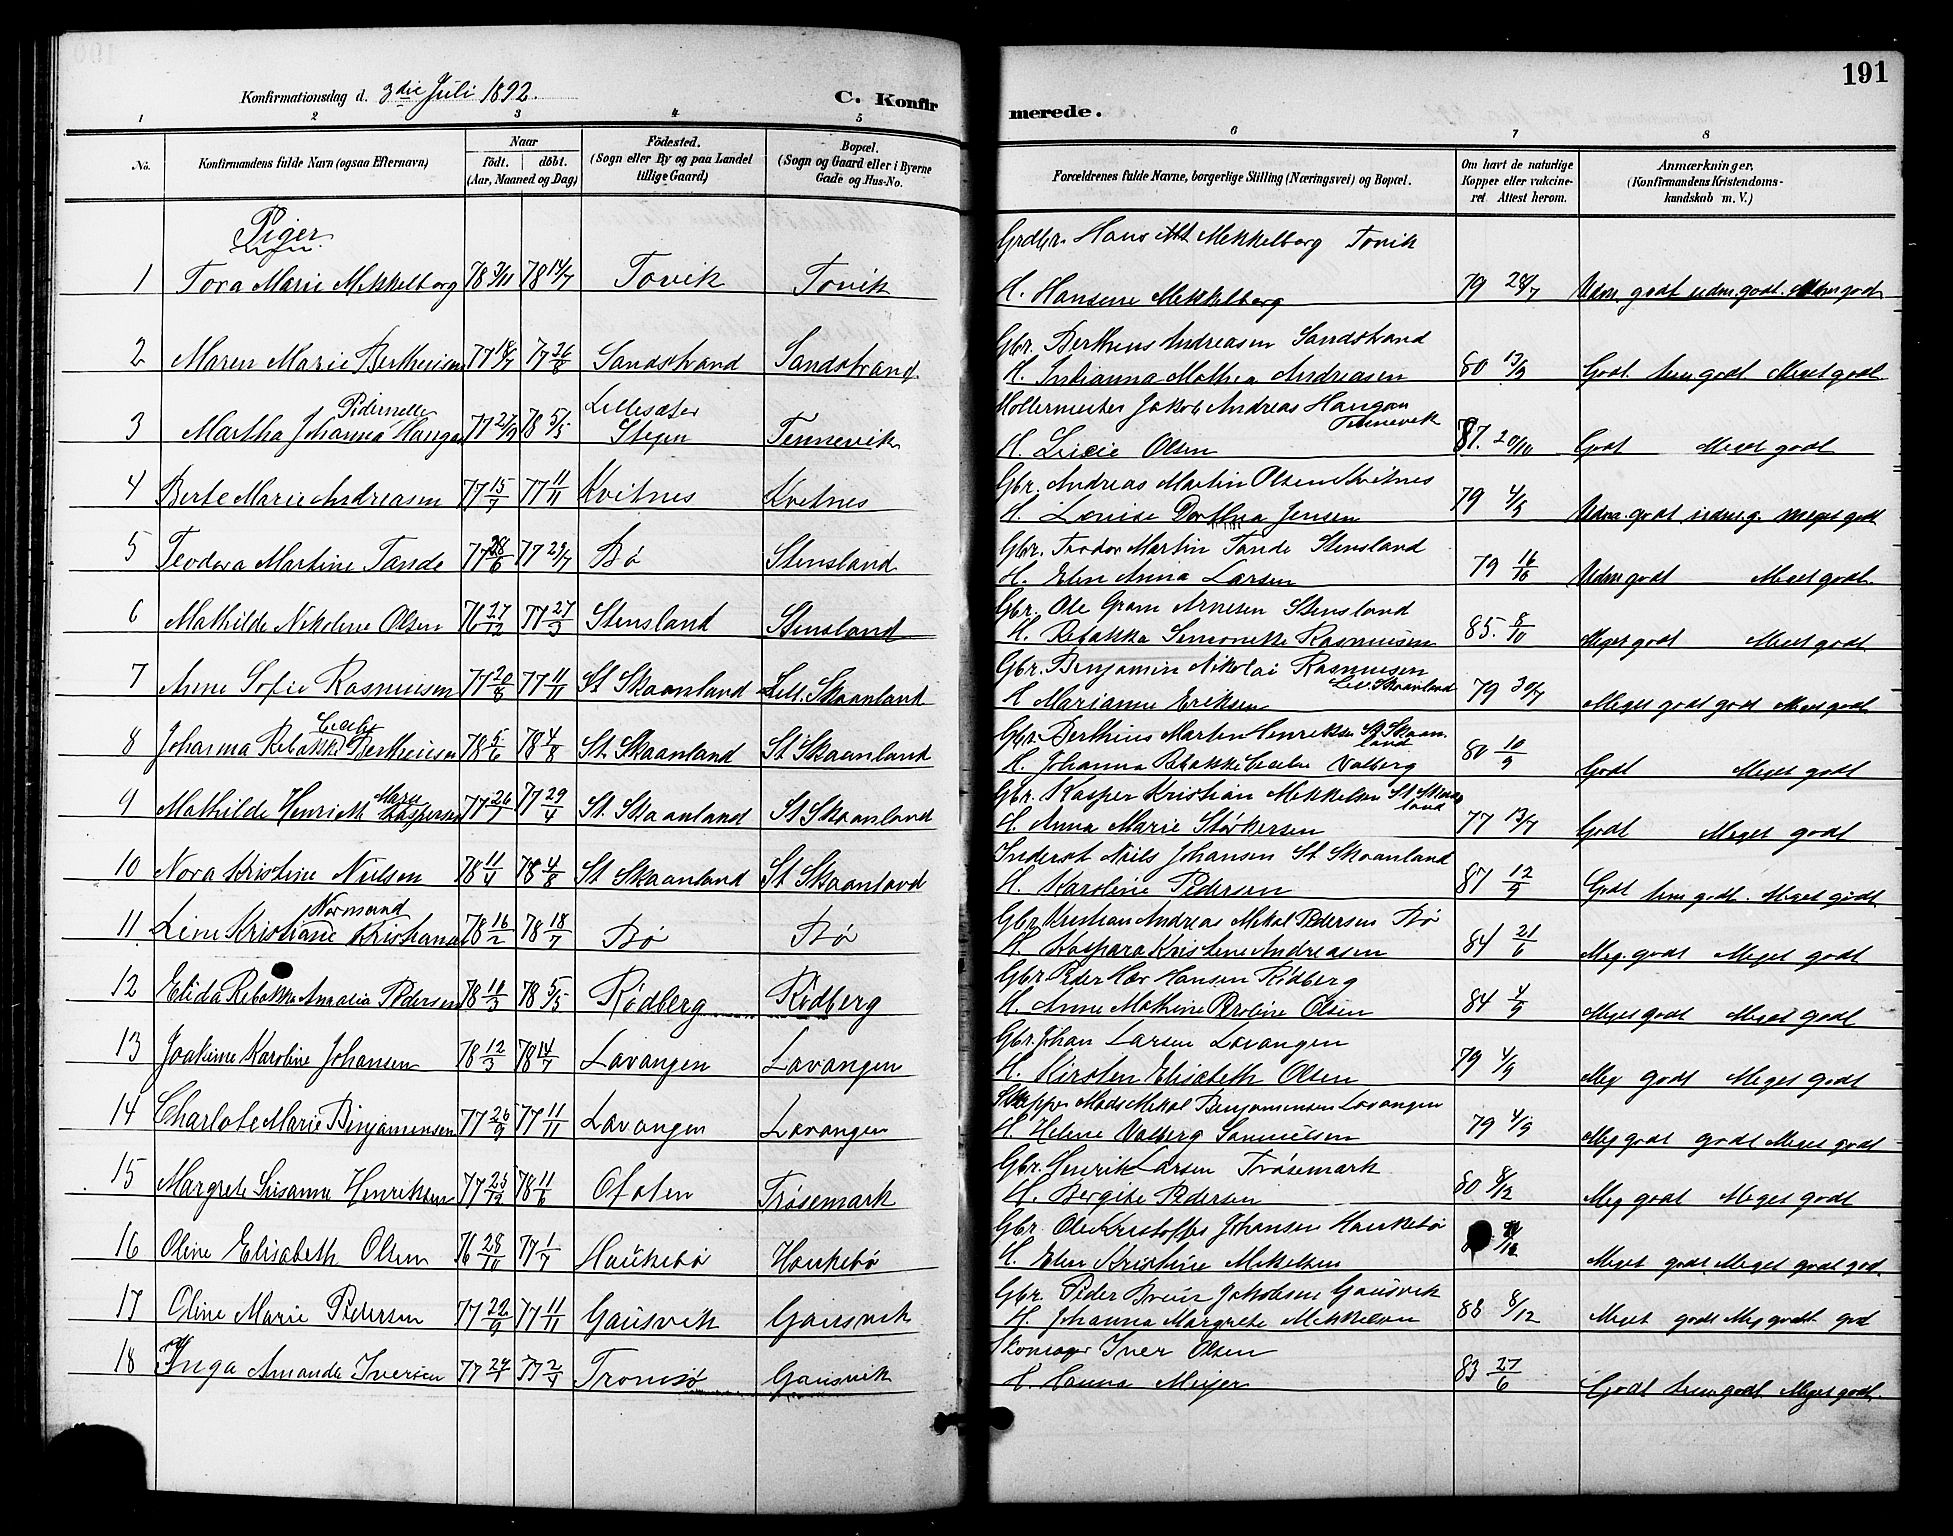 191
Konfirmationsdag d. 3die Juli 1892.
C. Konfir
merede.
1 2 3 4 5 6 7 8
No.
Konfirmandens fulde Navn (ogsaa Efternavn)
Naar
født. døbt.
(Aar, Maaned og Dag)
Fødested.
(Sogn eller By og paa Landet
tillige Gaard)
Bopæl.
(Sogn og Gaard eller i Byerne
Gade og Hus-No.
Forældrenes fulde Navne, borgerlige Stilling (Næringsvei) og Bopæl.
Om havt de naturlige
Kopper eller vakcine-
ret Attest herom.
Anmærkninger,
(Konfirmandens Kristendoms-
kundskab m. V.)
Piger
Grdbr. Hans Mekkelborg Tovik
1 Tora Marie Mekkelborg 78 78 14/7 Tovik Tovik H. Hansine Mekkelborg 79 28/7 Udm. godt udm. godt.
Gbr. Bertheus Andreasen Sandstrand
2 Maren Marie Bertheusen 77 18/7 77 26/8 Sandstrand Sandstrand H. Indianna Mathea Andreasen 80 13/9 Godt tem godt Meget godt.
Pedernelle Lillesæter Møllermester Jakob Andreas Haugan
Tennevik
3 Martha Johanna Haugan 77 27/9 78 5/5 Stegen Tennevik H. Olsen 87. 20/10 Godt Meget godt
Gbr. Andreas Martin Olsen Kvitnes
4 Berte Marie Andreasen 77 15/7 77 11/11 Kvitnes Kvitnes H. Lovise Dorthea Jensen 79 4/9 Udm. godt udm. g. meget godt
Gbr. Teodor Martin Tande Stensland
5 Teodora Martine Tande 77 28/6 77 29/7 Bø Stensland H. Elen Anna Larsen 79 16/10 Udm godt Meget godt.
Gbr. Ole Gram Arnesen Stensland
6 Mathilde Nikoline Olsen 76 27/12 77 27/3 Stensland Stensland H. Rebekka Simonette Rasmussen 85. 8/10 Meget godt Meget godt
Gbr. Benjamin Nikolai Rasmussen
Lill. Skaanland
7 Anne Sofie Rasmussen 77 20/8 77 11/11 St Skaanland Lill. Skaanland H Marianne Eriksen 79 30/7 Meget godt godt Meget godt
Cecelie Gbr. Bertheus Martin Henriksen St Skaan
land
8 Johanna Rebekka Bertheusen 78 5/6 78 4/8 St. Skaanland St Skaanland H. Johanna Rebekke Cecelie Valberg 80 10/9 Godt Meget godt
Marie Gbr. Kasper Kristian Mekkelsen St Skaan
land
9 Mathilde Henriette Kaspersen 77 26/1 77 29/4 St. Skaanland St Skaanland H. Anna Marie Størkersen 77 13/7 Godt Meget godt
Inderst Niels Johansen St Skaanland
10 Nora Kristine Nielsen 78 11/4 78 4/8 St Skaanland St Skaanland H. Karoline Pedersen 87 12/9 Godt tem godt. Meget godt
Normand Gbr. Kristian Andreas Mekal Pedersen Bø
11. Line Kristiane Kristiansen 78 16/2 78 18/7 Bø Bø H. Kaspara Kristine Andreasen 84 21/6 Meg. godt Meget godt
Gbr. Peder Hansen Rødberg
12 Elida Rebekka Amalia Pedersen 78 11/3 78 5/5 Rødberg Rødberg H. Anne Mathine Peroline Olsen 84 4/9 Meget godt Meget godt
Gbr. Johan Larsen Lavangen
13 Joakime Karoline Johansen 78 12/3 78 14/7 Lavangen Lavangen H. Kirsten Elisabeth Olsen 79 4/9 Meg godt Meget godt
Skipper Mads Mekal Benjaminsen Lavangen
14 Charlote Marie Benjaminsen 77 26/9 77 11/11 Lavangen Lavangen H. Helene Valberg Samuelsen 79 4/9 Meg godt godt Meget godt
Gbr. Henrik Larsen Trøsemark
15 Margrete Susanna Henriksen 77 25/12 78 11/6 Ofoten Trøsemark H. Bergite Pedersen 80 8/2 Meg godt Meget godt
Gbr. Ole Kristoffer Johansen Haukebø
16 Oline Elisabeth Olsen 76 28/10 77 1/7 Haukebø Haukebø H. Elen Kristine Mekelsen Meget godt Meget godt god.
Gbr. Peder Jakobsen Gausvik
17 Oline Marie Pedersen 77 22/9 77 11/11 Gausvik Gausvik H. Johanna Margrete Mekkelsen 88 8/12 Meget godt Meg godt god
Skomager Iver Olsen
18 Inga Amanda Iversen 77 77 2/4 Tromsø Gausvik H. Hanna Meijer 83 27/6 Godt tem godt. Meget godt.